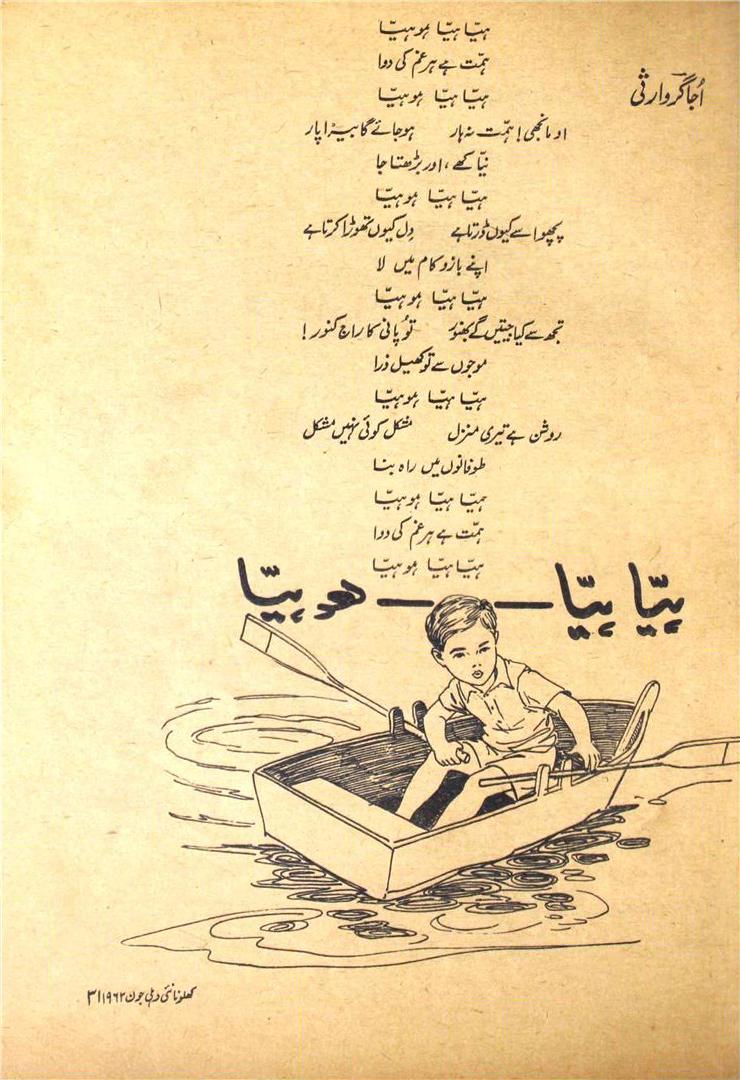 ہیّا ہیّا ہو ہیّا
ہمّت ہے ہر غم کی دوا
ہیّا ہیّا ہو ہیّا
اُجاگر وارثی
او مانجھی! ہمّت نہ ہار ہو جائے گا بیڑا پار
نیّا کھے، اور بڑھتا جا
ہیّا ہیّا ہو ہیّا
پچھوا سے کیوں ڈرتا ہے دِل کیوں تھوڑا کرتا ہے
اپنے بازو کام میں لا
ہیّا ہیّا ہو ہیّا
تجھ سے کیا جیتیں گے بھنور تُو پانی کا راج کنور!
موجوں سے تو کھیل ذرا
ہیّا ہیّا ہو ہیّا
روشن ہے تیری منزل مشکل کوئی نہیں مشکل
طوفانوں میں راہ بنا
ہیّا ہیّا ہو ہیّا
ہمّت ہے ہر غم کی دوا
ہیّا ہیّا ہو ہیّا
ہیّا ہیّا — — ھو ہیّا
کھلونا نئی دہلی جون ۱۹۶۲ ۳۱